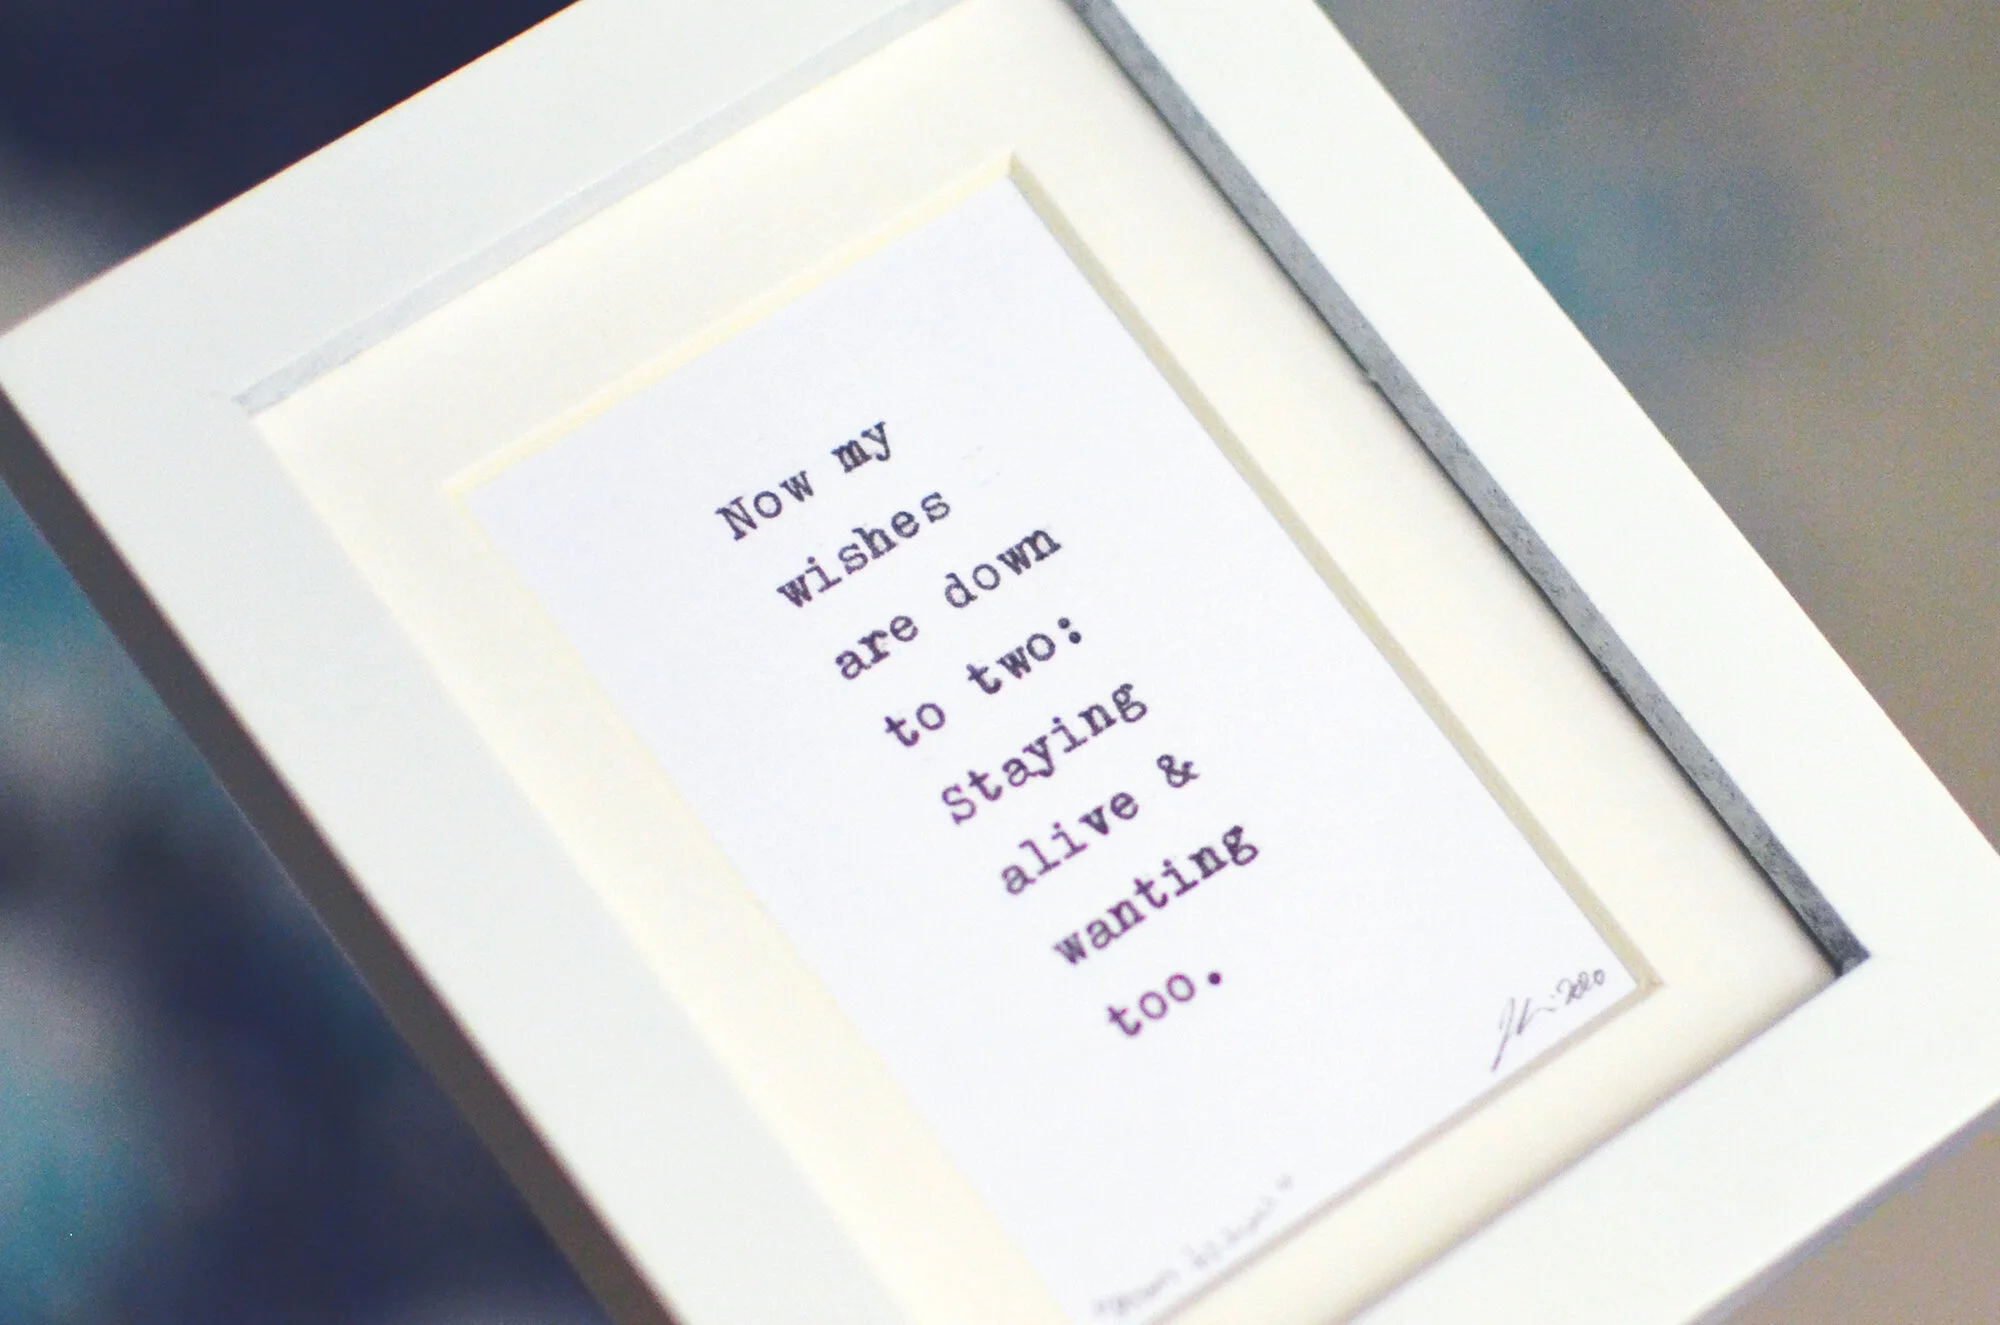 Now my
wishes
are down
to two:
Staying
alive &
wanting
too.
2020